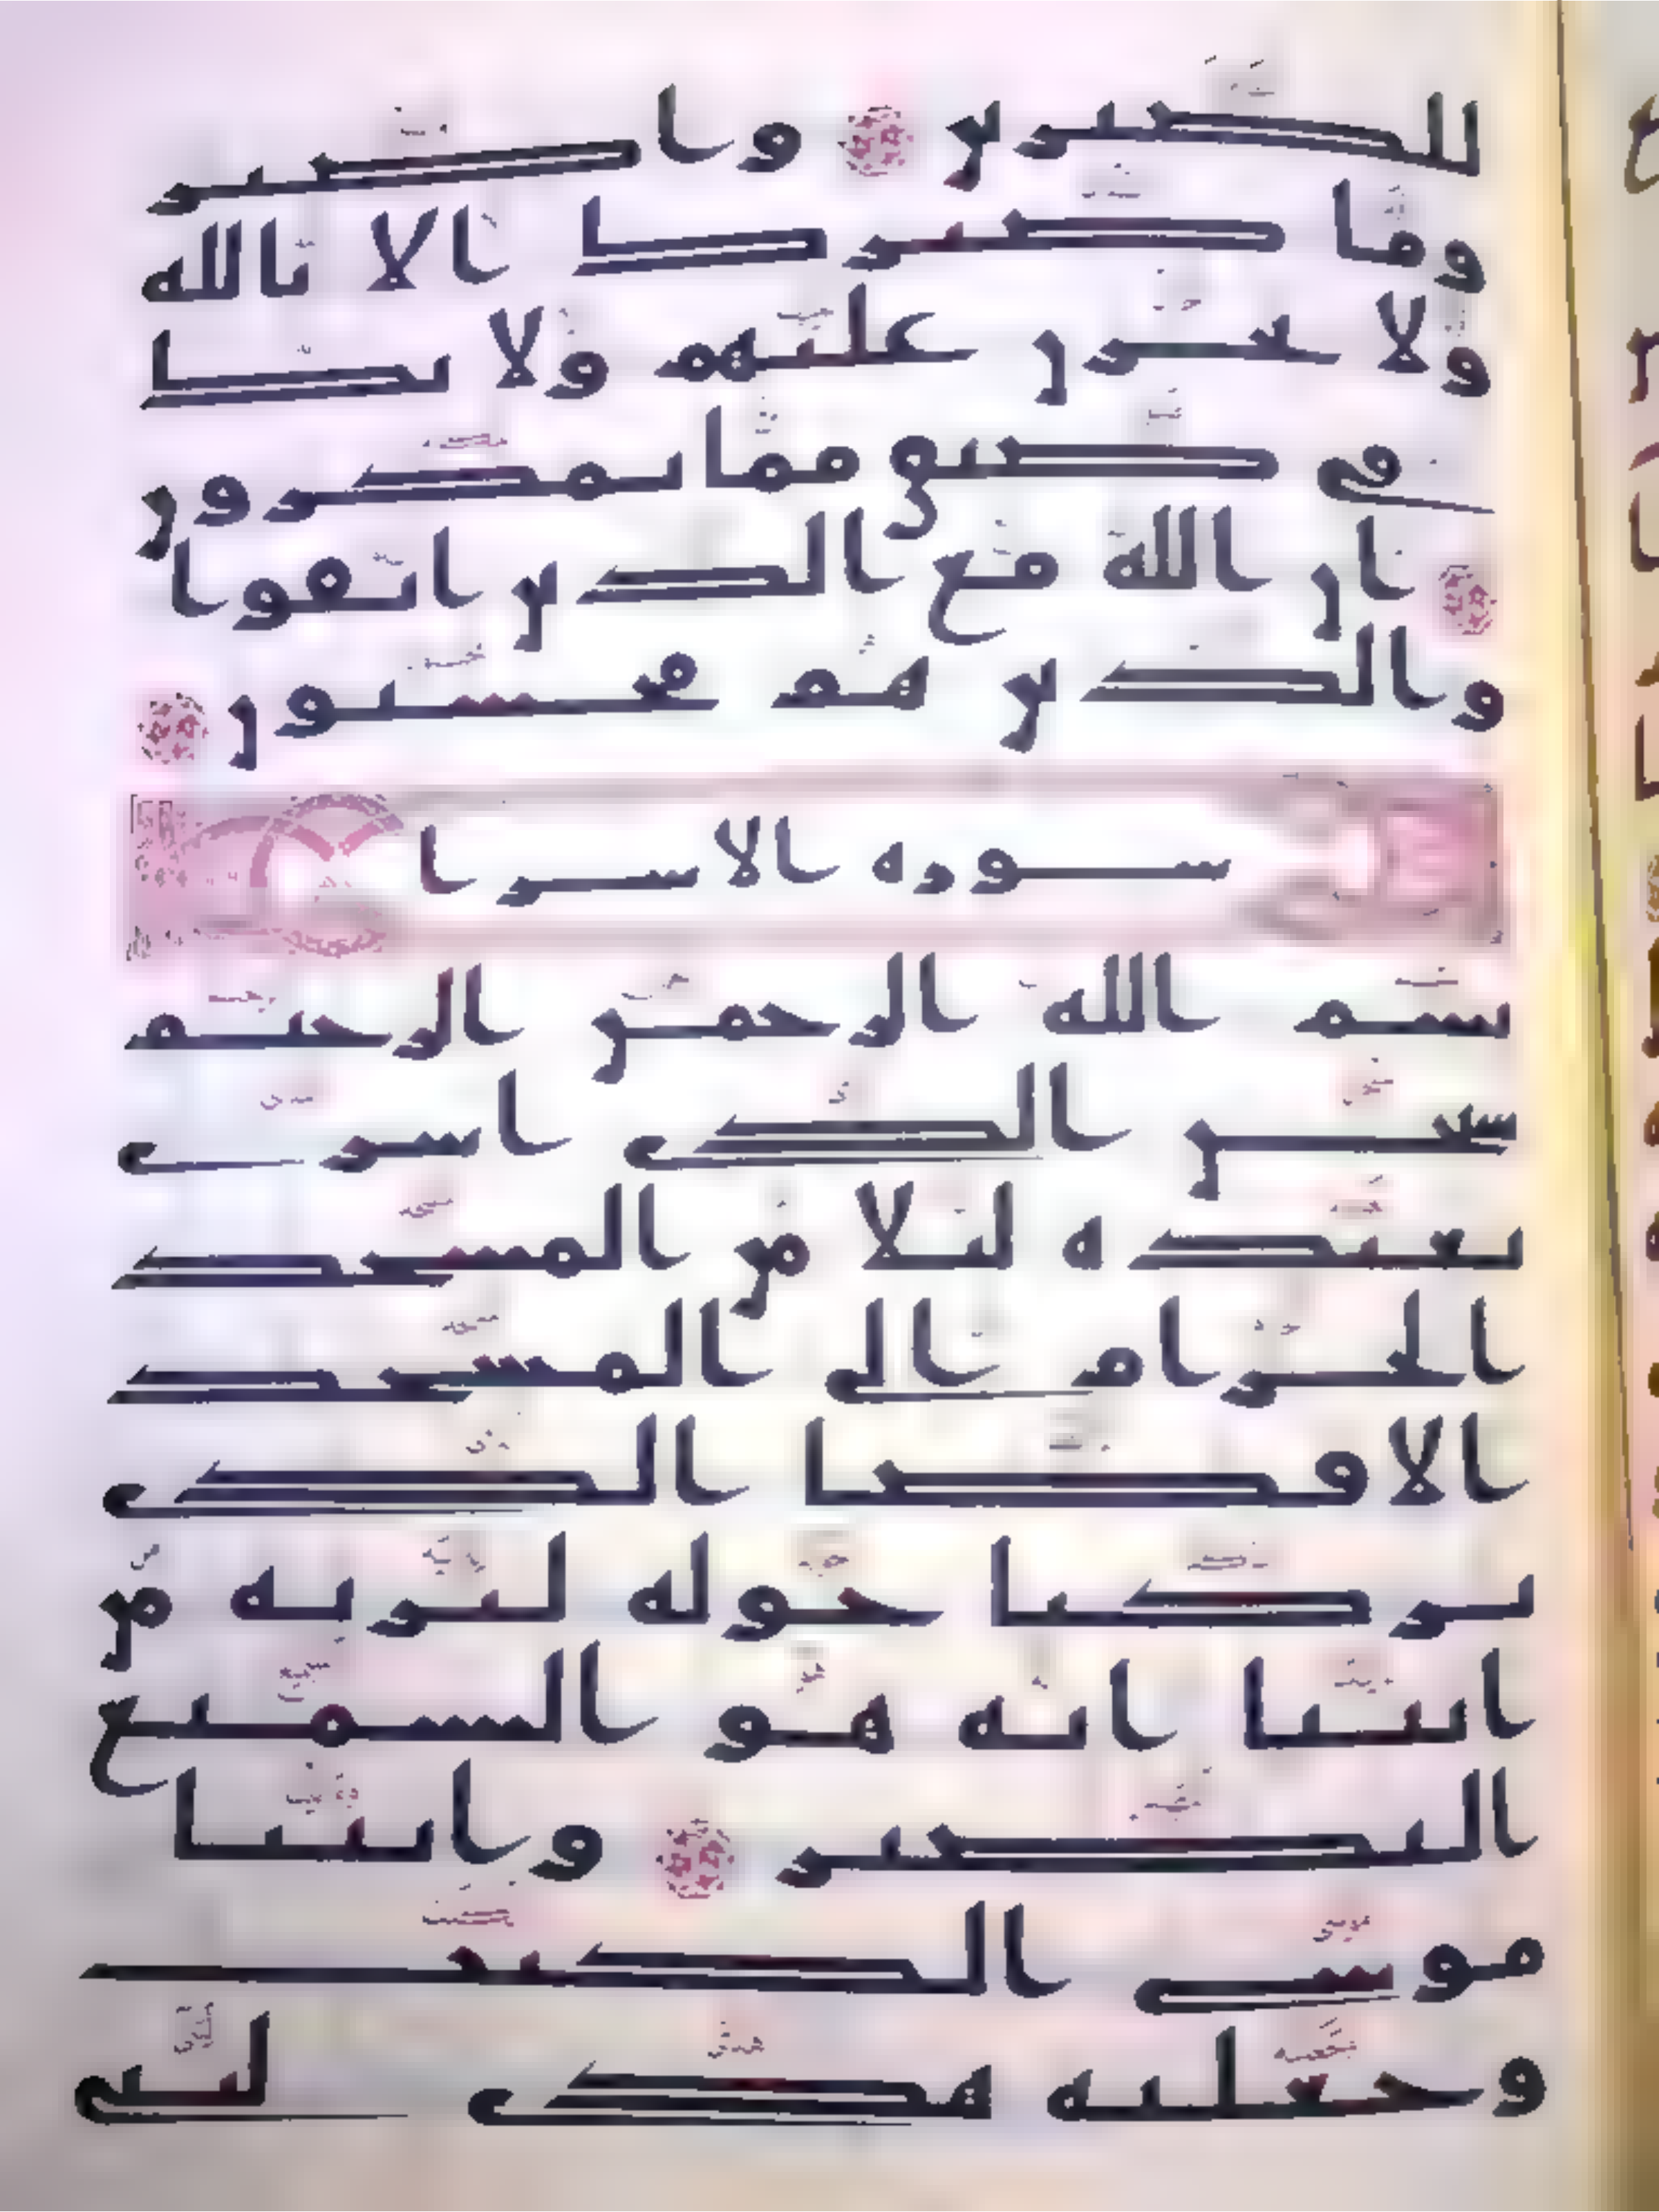 للصبرين واصبر
وما صبرك الا بالله
ولا تحزن عليهم ولا تك
في ضيق مما يمكرون
ان الله مع الذين اتقوا
والذين هم محسنون
سورة الاسرا
بسم الله الرحمن الرحيم
سبحن الذي اسرى
بعبده ليلا من المسجد
الحرام الى المسجد
الاقصا الذي
بركنا حوله لنريه من
ايتنا انه هو السميع
البصير واتينا
موسى الكتب
وجعلنه هدى لبني